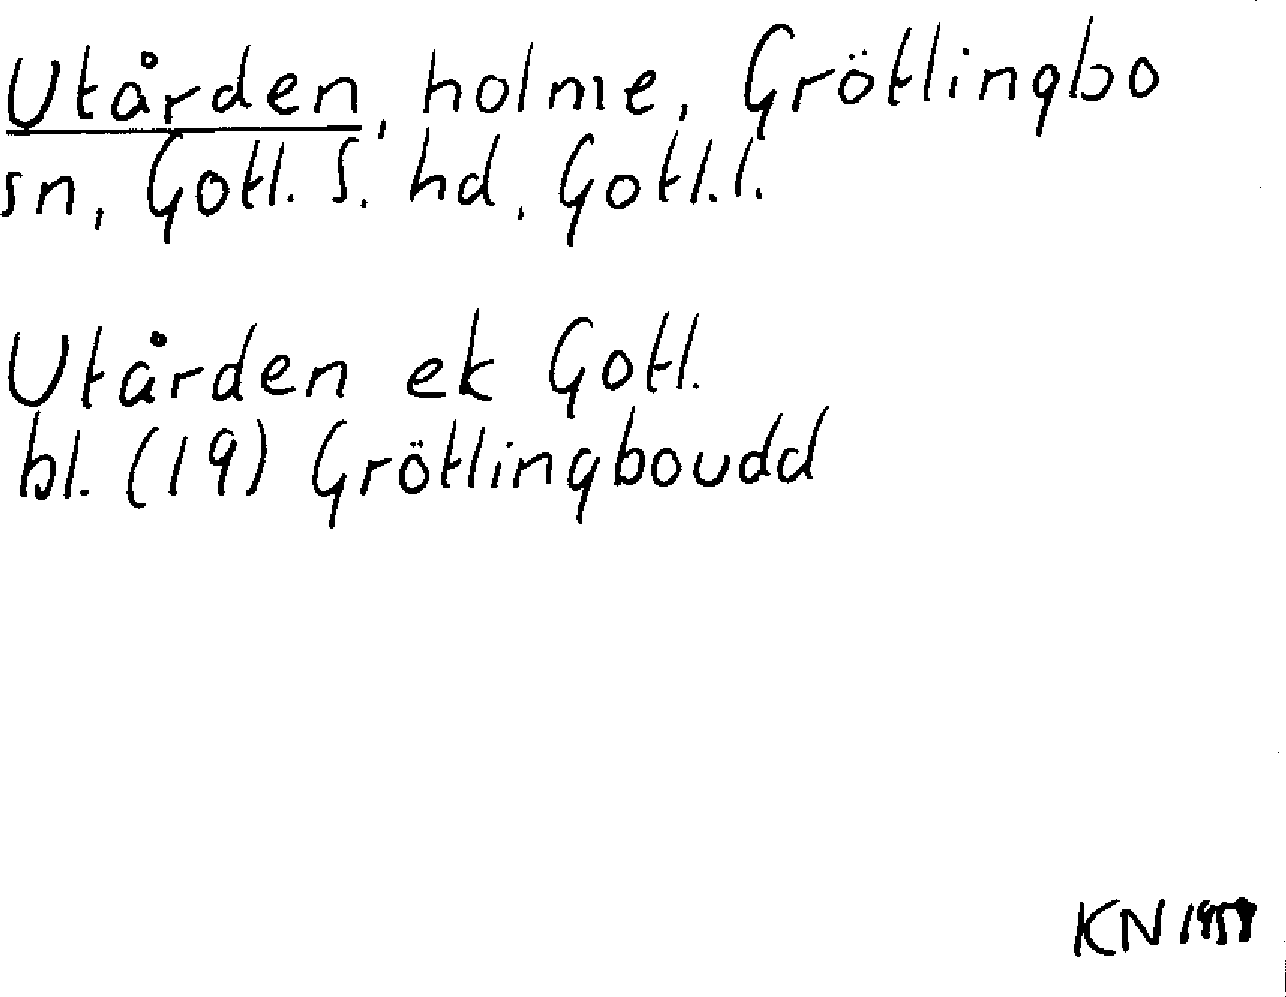 Utården, holme, Grötlingbo
sn, Gotl. S. hd, Gotl.l.
Utården ek Gotl.
bl. (19) Grötlingboudd
KN